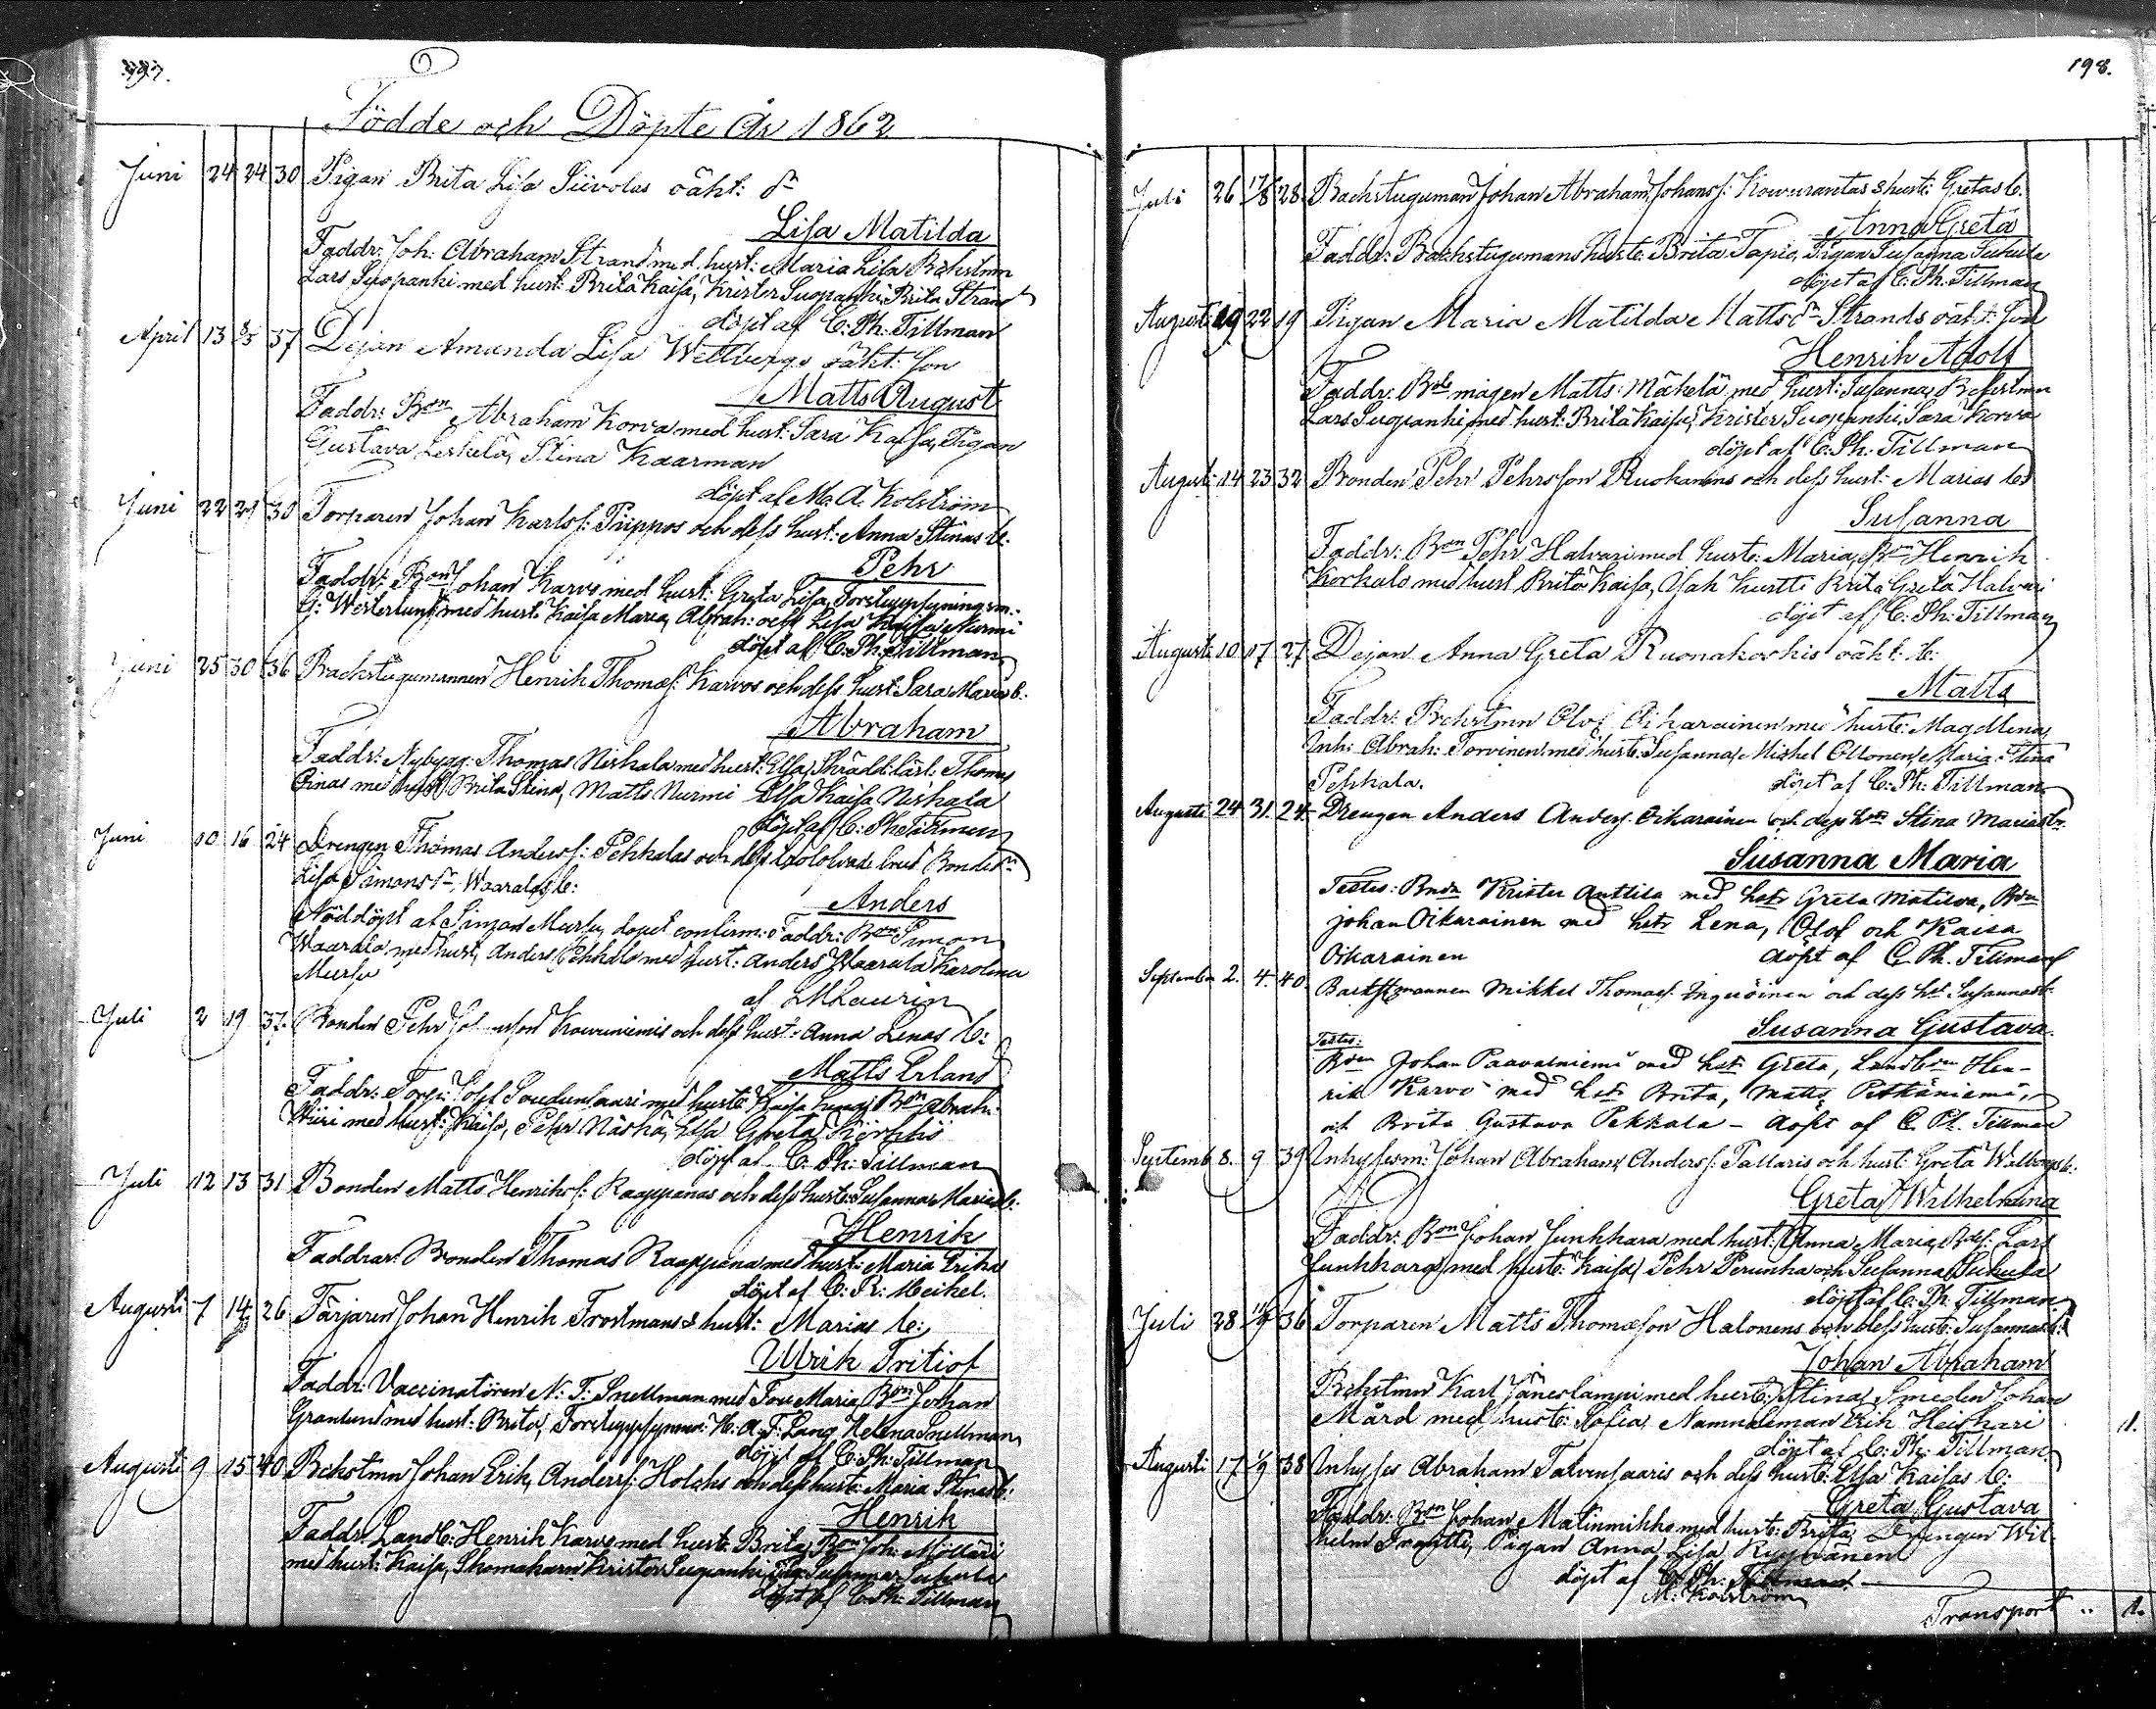 197.
Födde och Döpte År 1862
Juni 24 24 30 Pigan Brita Lisa Siivolas oäkt: dr
Lisa Matilda
Faddr: Joh: Abraham Strand med hust: Maria Lisa Bckstmn
Lars Suopanki med hust: Brita Kaisa, Krister Suopanki, Brita Strand
döpt af C: Ph: Tillman
April 13 37 Dejan Amanda Lisa Wettbergs oäkt: Son
Matts August
Faddr: Bon Abraham Korva med hust: Sara Kaisa, Pigan
Gustava Leskelä, Stina Kaarman
döpt af M: A: Kolström
Juni 22 30 Torparen Johan Karlss: Piippos och dess hust: Anna Stinas b:
Pehr
Faddr: Bon Johan Karvo med hust: Greta Lisa, Forstuppsyningsm:
G: Westerlund med hust: Kaisa Maria, Abrah: och Lisa Kaisa Nurmi
döpt af C: Ph: Tillman
Juni 25 30 36 Backstugumannen Henrik Thomæs: Karvos och dess hust: Sara Marias b:
Abraham
Faddr: Nybygg: Thomas Niskala med hust: Elsa, Skrädd:lärl: Thomas
med hust: Brita Stina, Matts Nurmi Elsa Kaisa Niskala
döpt af C: Ph: Tillman
Juni 10 16 24 Drengen Thomas Anderss: Pekkalas och dess trolofvade brud Bondedr
Lisa Simonsdr Waaralas b:
Anders
Nöddöpt af Simon Mursu, dopet confirm: Faddr: Bon Simon
Waarala med hust, Anders Pekkala med hust: Anders Waarala Karolina
Mursu
af Laurin
Juli 2 19 37 Bonden Pehr Kouriniemis och dess hust: Anna Lenas b:
Matts Erland
Faddr: Torp: Olof med hust: Kaisa Bon Abrah:
med hust: Kaisa, Pehr Näskä, Elsa Greta
döpt af C: Ph: Tillman
Juli 12 13 31 Bonden Matts Henrikss: Raappanas och dess hust: Susanna Marias b:
Henrik
Faddrar: Bonden Thomas Raappana med hust: Maria Erika
döpt af C: R: Heikel.
Augusti 7 14 26 Färjaren Johan Henrik Trostmans & hust: Marias b:
Ulrik Fritiof
Faddr: Vaccinatören N: F: Snellman med Fru Maria, Bon Johan
Granlund med hust: Brita, Forstuppsynm: H: A: F: Lang Helena Snellman
döpt af C: Ph: Tillman
Augusti 9 15 40 Bckstmn Johan Erik, Anderss: och dess hust: Maria Stinas b:
Henrik
Faddr: Landb: Henrik Karvo med hust: Brita, Bon Joh: Möllari
med hust: Kaisa, Skomakaren Krister Suopanki, Susanna Sukula
döpt af C: Ph: Tillman
198.
Juli 26 17/8 28. Backstuguman Johan Abraham, Johanss: Kouvurantas & hust: Gretas b:
Anna Greta
Faddr: Backstugumans hust: Brita Tapio, Pigan Susanna Sukula
döpt af C: Ph: Tillman
Augusti 19 22 19 Pigan Maria Matilda Mattsdr Strands oäkt: Son
Henrik Adolf
Faddr: Bdemågen Matts: Mäkelä med hust: Susanna, Bckstmn
Lars Suopanki med hust: Brita Kaisa, Krister Suopanki, Sara Korva
döpt af C: Ph: Tillman
Augusti 14 23 32 Bonden Pehr Pehrsson Ruokanens och dess hust: Marias b:
Susanna
Faddr: Bon Pehr Halvari med hust: Maria, Bon Henrik
Korkalo med hust Brita Kaisa, Isak Kurtti Brita Greta Halvari
döpt af C: Ph: Tillman
Augusti 10 17 27 Dejan Anna Greta Ruonakoskis oäkt: b:
Matts
Faddr: Bckstmn Olof Oikarainen med hust: Magdlena,
Inh: Abrah: Torvinen med hust: Susanna, Mickel Ollonen, Maria Stina
Pekkala.
döpt af C: Ph: Tillman
Augusti 24 31. 24 Drengen Anders Anderss: Oikarainen och dess hu Stina Marias b:
Susanna Maria
Testes: Bndn Krister Anttila med hstr Greta Matilda, Bdn
Johan Oikarainen med hstr Lena, Olof och Kaisa
Oikarainen
döpt af C. Ph. Tillman
September 2. 4. 40. Backstmannen Mikkel Thomæs: Inguöinen och dess hst Susannas b:
Susanna Gustava.
Testes:
Bdn Johan Paavalniemi med hst Greta, Landbn Hen-
rik Karvo med hst Brita, Matts Pitkäniemi,
och Brita Gustava Pekkala - döpt af C. Ph. Tillman
Septemb 8. 9 39 Inhysesm: Johan Abraham, Anderss: Tallaris och hust: Greta Walborgs b:
Greta Wilhelmina
Faddr: Bon Johan Junkkara med hust: Anna Maria, Bdes: Lars
Junkkara med hust: Kaisa, Pehr Perunka och Susanna Sukula
döpt af C: Ph: Tillman.
Juli 28 36 Torparen Matts Thomæson Halonens och dess hust: Susannas b:
Johan Abraham
Bckstmn Karl Jäneslampi med hust: Stina, Smeden Johan
Mård med hust: Sofia, Nämndeman Erik Heiskari 1.
döpt af C: Ph: Tillman.
Augusti 17 1/9 38 Inhyses Abraham Talvensaaris och dess hust: Elsa Kaisas b:
Greta Gustava
Faddr: Bon Johan Matinmikko med hust: Brita, Drengen Wil-
helm Pigan Anna Lisa
döpt af C: Ph: Tillman
M: Kolström
Transport .. 1.